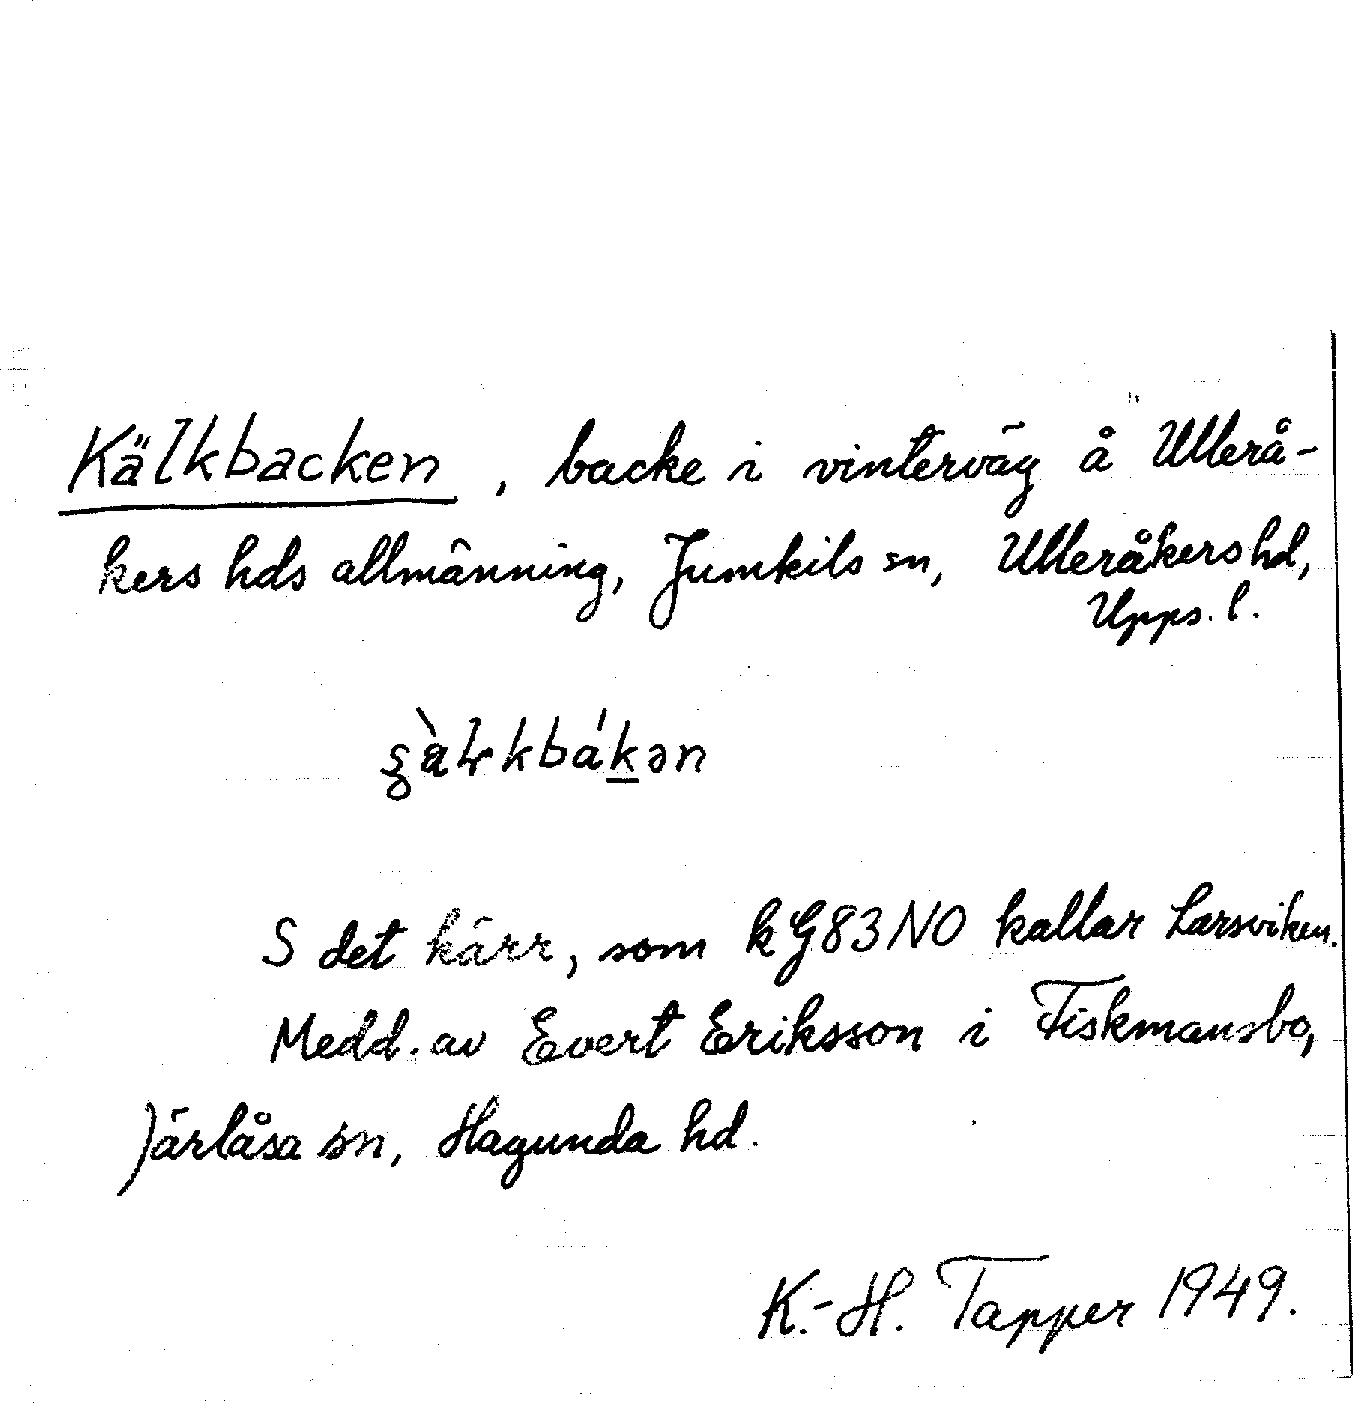 Kälkbacken, backe i vinterväg å Ullerå-
kers hds allmänning, Jumkils sn, Ulleråkers hd,
Upps. l.
S det kärr, som kG83NO kallar Larsviken.
Medd. av Evert Eriksson i Fiskmansbo,
Järlåsa sn, Hagunda hd.
K.-H. Tapper 1949.